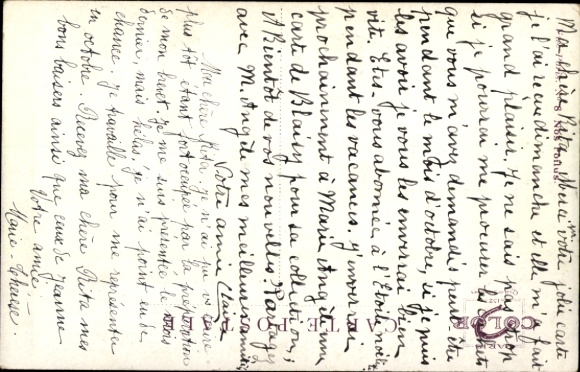 Ma chère Rita, Merci de votre jolie carte
je l'ai reçue dimanche et elle m'a fait
grand plaisir. Je ne sais pas trop
si je pourrai me procurer les
que vous m'avez demandés peut être
pendant le mois d'octobre, si je puis
les avoir je vous les enverrai bien
vite. Etes-vous abonnée à l'Etoile noëliste
pendant les vacances. J'enverrai
prochainement à Marie Angèle une
carte de Blaisy pour sa collection,
A Bientôt de vos nouvelles. Partagez
avec M. Angèle mes meilleures amitiés
Votre amie Claire
Ma chère Rita, Je n'ai pu vs écrire
plus tôt étant fort occupée par la préparation
de mon brevet. Je me suis présentée le mois
dernier, mais hélas! je n'ai point eu de
chance. Je travaille pour me représenter
en octobre. Recevez ma chère Rita mes
bons baisers ainsi que ceux de Jeanne
Votre amie
Marie Thérèse.
CARTE POSTALE
COLOR